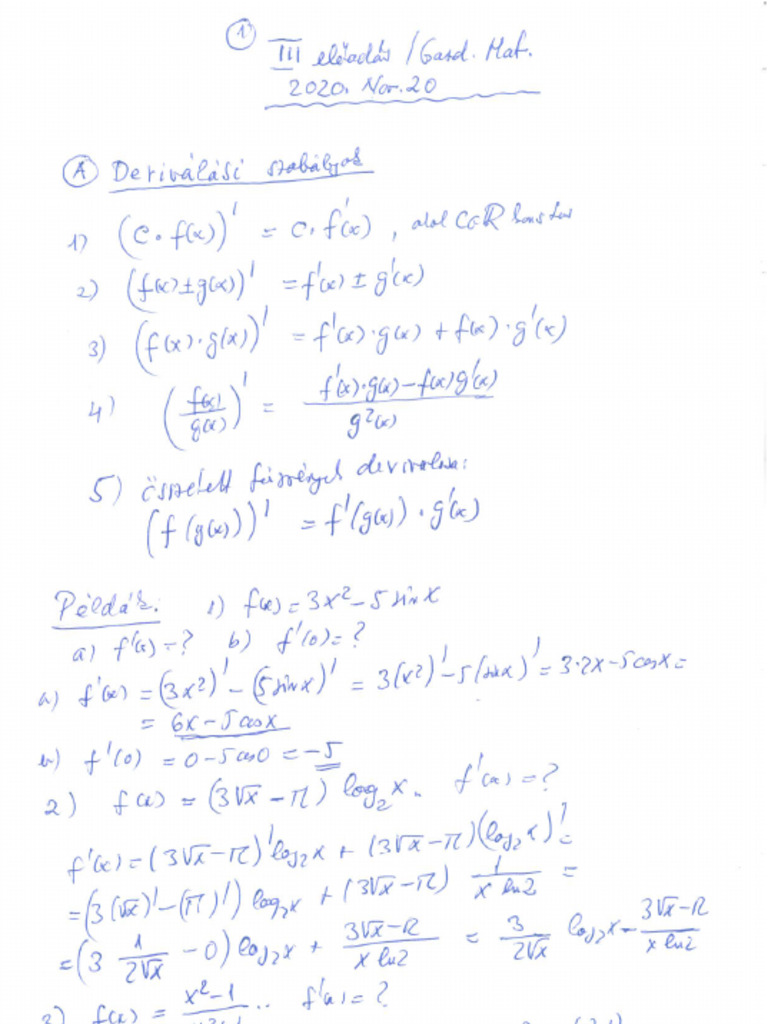 1
III előadás / Gazd. Mat.
2020. Nov. 20
A Deriválási szabályok
1) (c · f(x))' = c · f'(x), ahol c∈R konstans
2) (f(x) ± g(x))' = f'(x) ± g'(x)
3) (f(x) · g(x))' = f'(x) · g(x) + f(x) · g'(x)
4) (f(x)/g(x))' = (f'(x) · g(x) − f(x) g'(x))/g²(x)
5) összetett függvények deriválása:
(f(g(x)))' = f'(g(x)) · g'(x)
Példák: 1) f(x) = 3x² − 5 sin x
a) f'(x) = ? b) f'(0) = ?
a) f'(x) = (3x²)' − (5 sin x)' = 3(x²)' − 5(sin x)' = 3·2x − 5 cos x =
= 6x − 5 cos x
b) f'(0) = 0 − 5 cos 0 = −5
2) f(x) = (3√x − π) log₂x .. f'(x) = ?
f'(x) = (3√x − π)' log₂x + (3√x − π)(log₂x)' =
= (3(√x)' − (π)') log₂x + (3√x − π) 1/(x ln2) =
= (3 1/(2√x) − 0) log₂x + (3√x − π)/(x ln2) = 3/(2√x) log₂x − (3√x − π)/(x ln2)
3) f(x) = x² − 1 .. f'(x) = ?